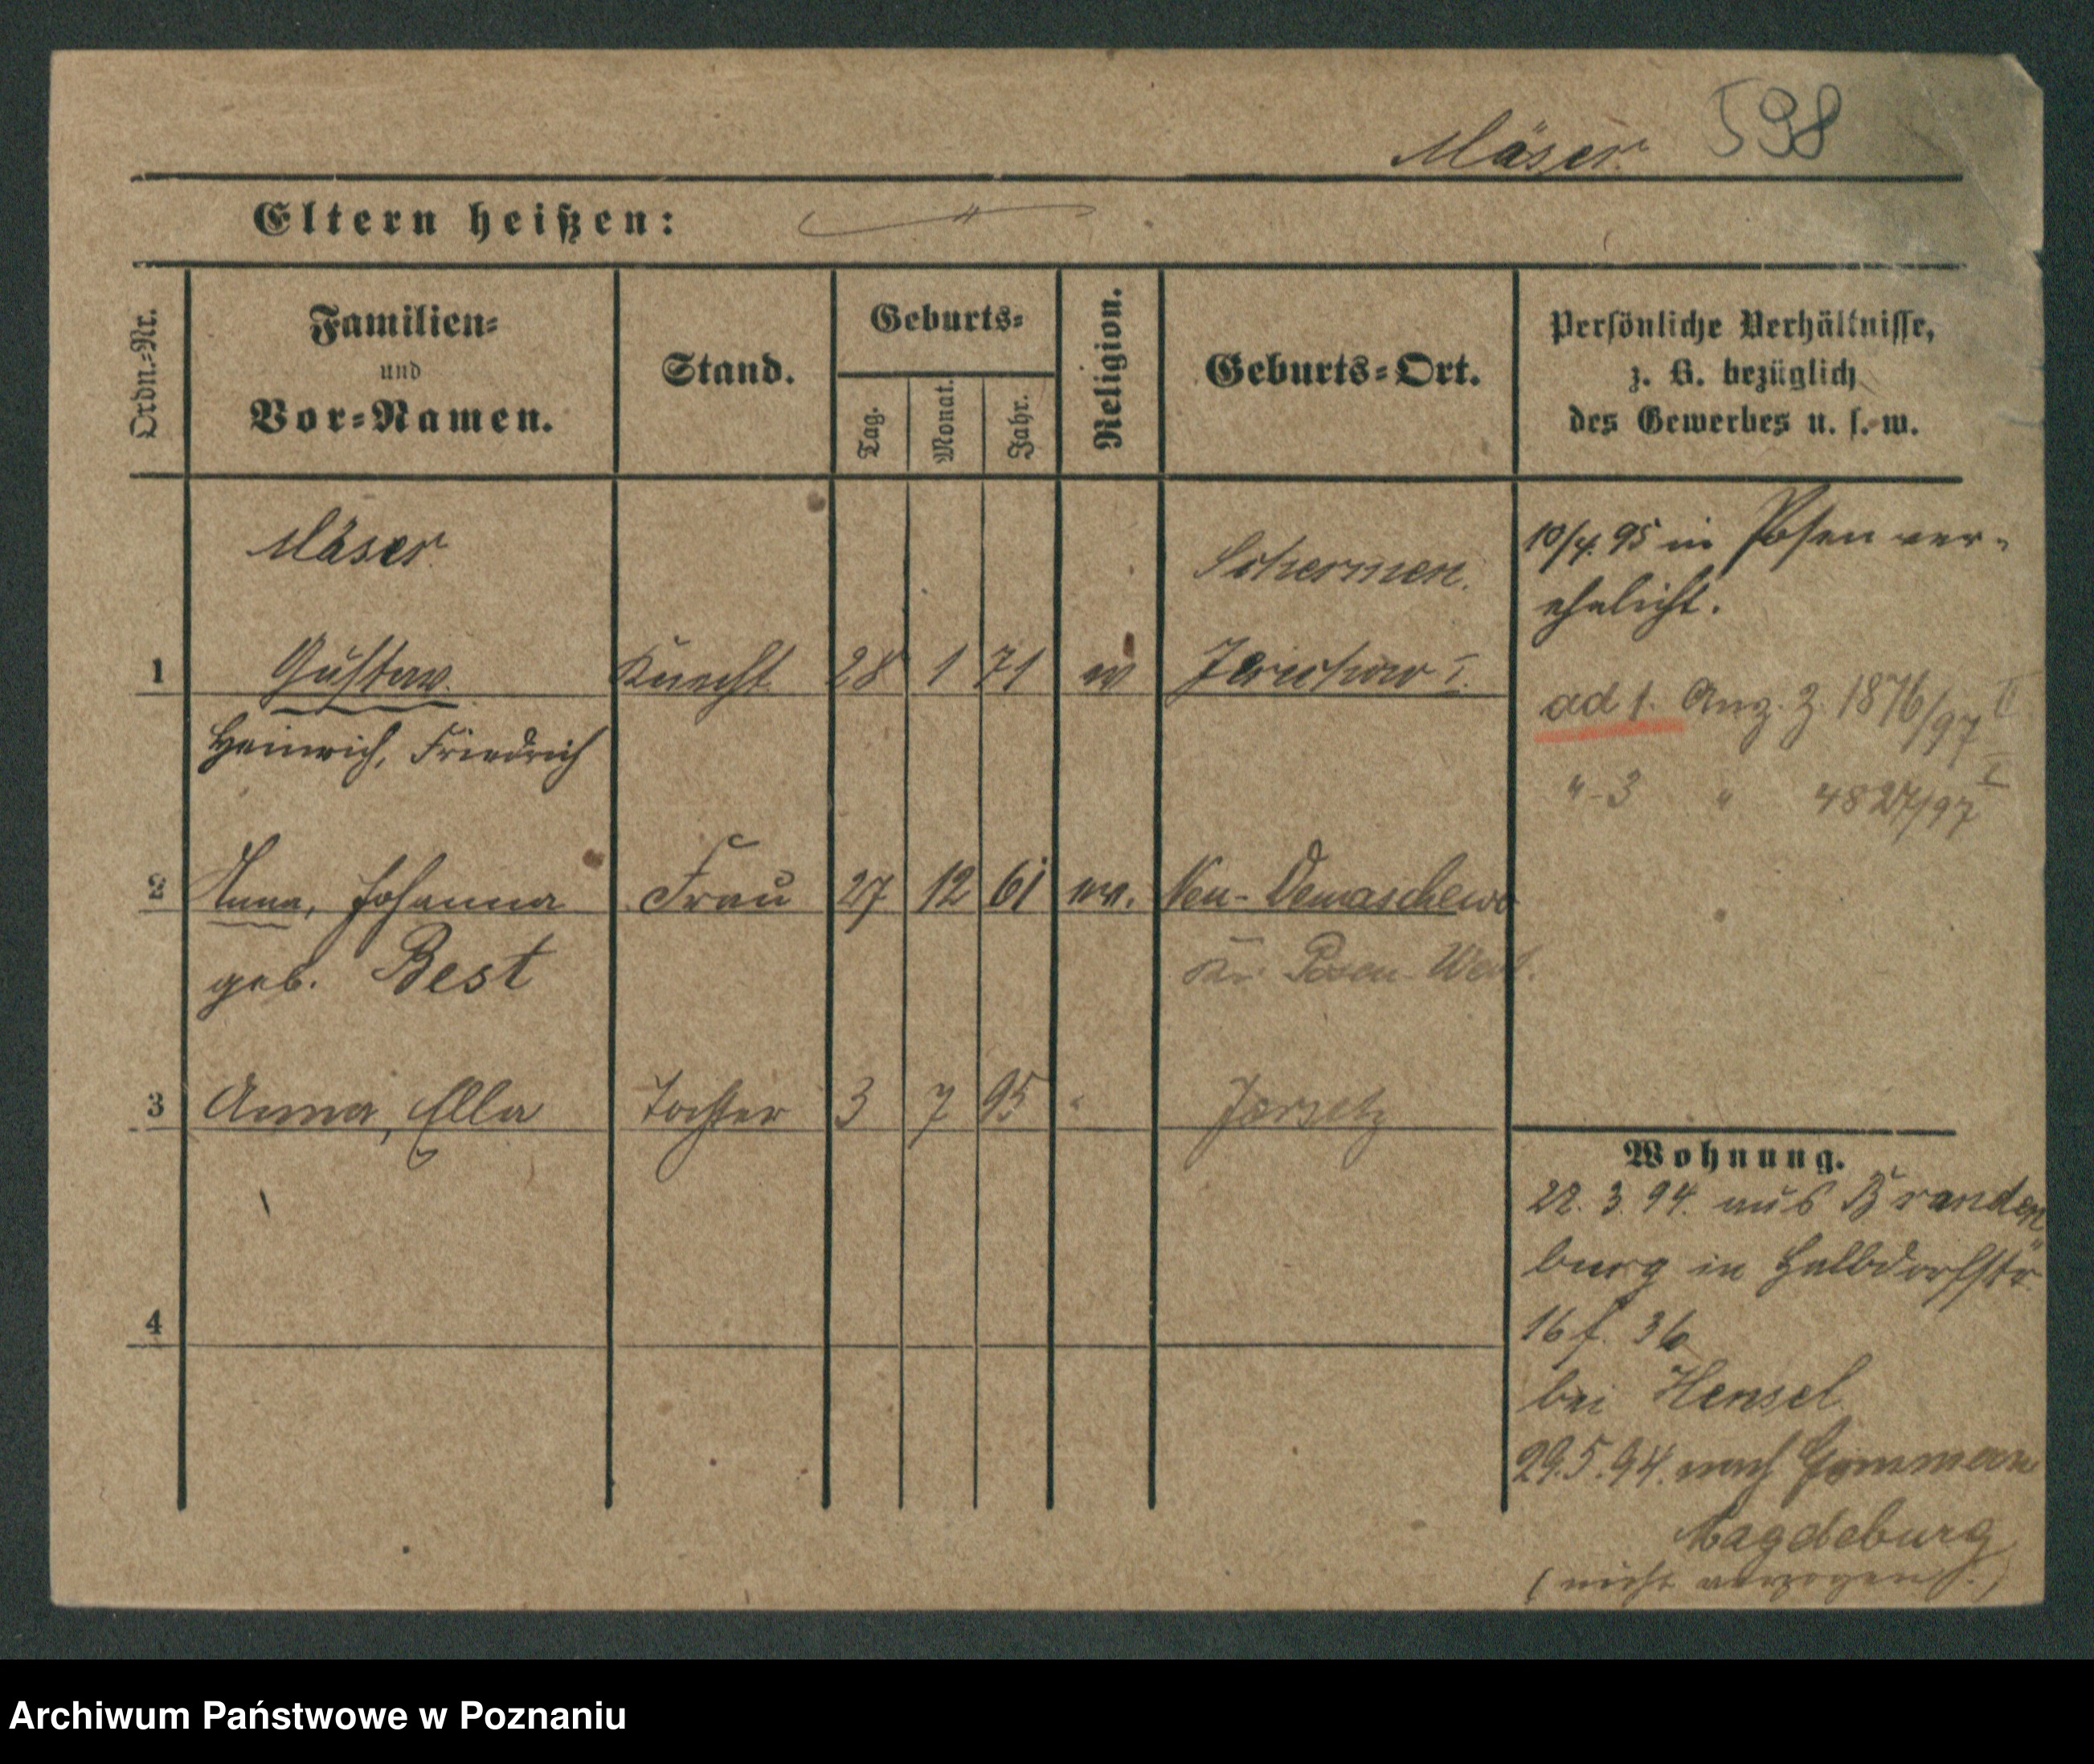 Mäser. 598
Eltern heißen:
Ordn.=Nr.
Familien=
und
Vor=Namen.
Stand.
Geburts=
Tag.
Monat.
Jahr.
Religion.
Geburts=Ort.
Persönliche Verhältnisse,
z. B. bezüglich
des Gewerbes u. s. w.
Mäser.
Schermen.
1 Gustav. Knecht 28 1 71 ev Jerichow I.
Heinrich, Friedrich
2 Anna, Johanna Frau 27 12 61 ev. Neu-Demaschewo
geb. Best
Kr. Posen-West.
3 Anna, Ella Tochter 3 7 95 " Jersitz
4
10/4. 95 in Posen ver-
ehelicht.
ad 1. Anz. Z. 1876/97 II
" 3 " 4827/97 I
Wohnung.
22. 3. 94. aus Branden
burg in Halbdorfstr.
16 f. 36
bei Hensel
29.5.94. nach Gommern
Magdeburg
(nicht verzogen.)
Archiwum Państwowe w Poznaniu